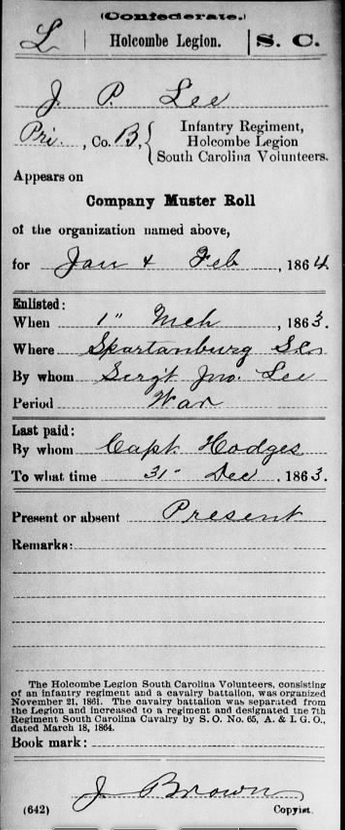 (Confederate.)
L | Holcombe Legion. | S. C.
J. P. Lee
Pri., Co. B, { Infantry Regiment,
Holcombe Legion
South Carolina Volunteers.
Appears on
Company Muster Roll
of the organization named above,
for Jan & Feb, 1864
Enlisted:
When 1" Mch, 1863.
Where Spartanburg S.C.
By whom Sergt Jno. Lee
Period War
Last paid:
By whom Capt. Hodges
To what time 31" Dec, 1863.
Present or absent Present
Remarks:
The Holcombe Legion South Carolina Volunteers, consisting
of an infantry regiment and a cavalry battalion, was organized
November 21, 1861. The cavalry battalion was separated from
the Legion and increased to a regiment and designated tne 7th
Regiment South Carolina Cavalry by S. O. No. 65, A. & I. G. O.,
dated March 18, 1864.
Book mark:
J Brown
(642) Copyist.